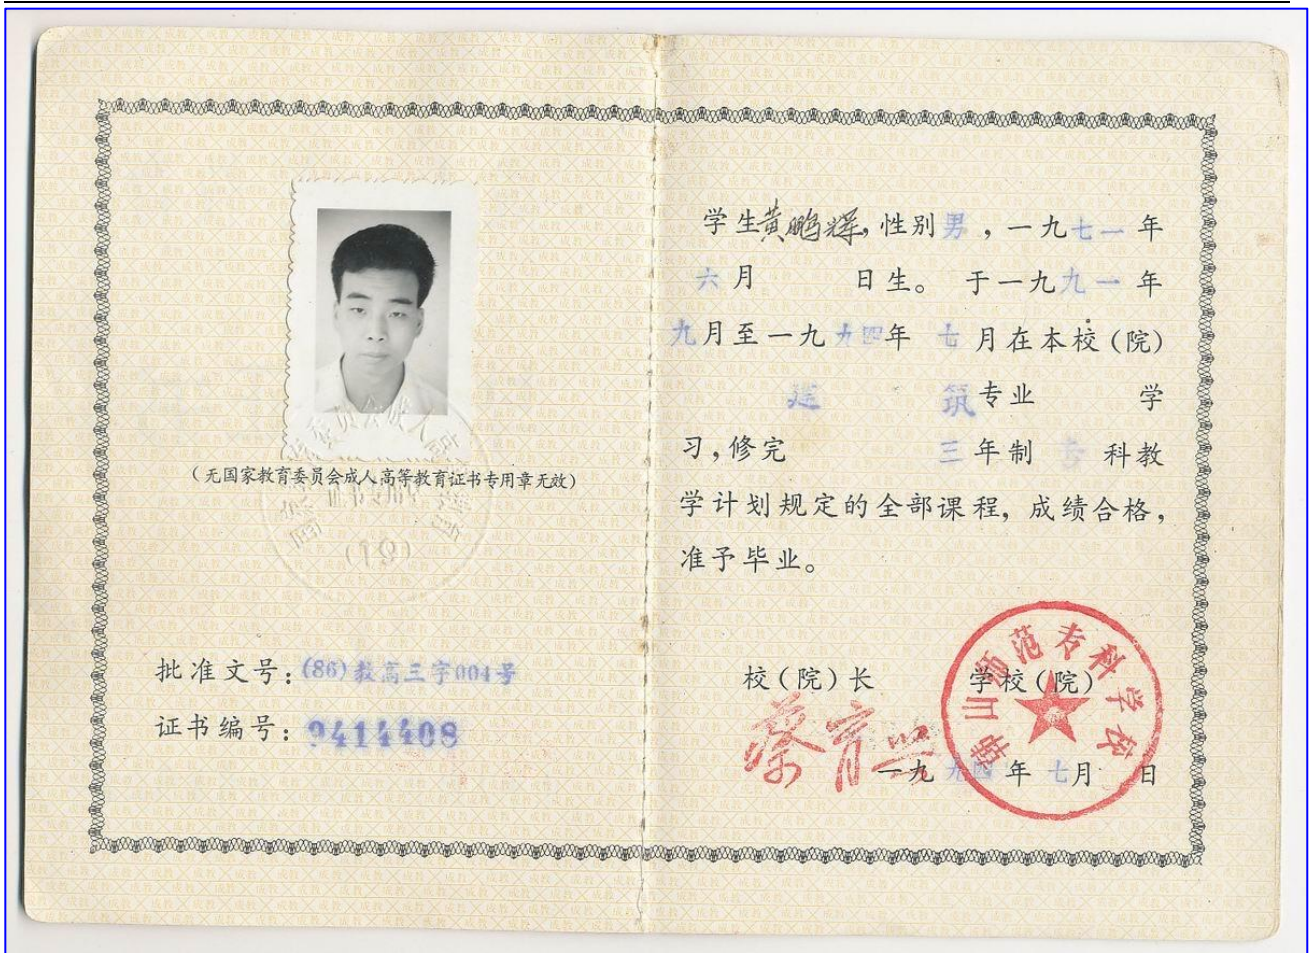 (无国家教育委员会成人高等教育证书专用章无效)
(19)
批准文号：(86)教高三字004号
证书编号：9414408
学生黄鹏辉，性别男，一九七一年
六月 日生。于一九九一年
九月至一九九四年 七月在本校(院)
建 筑专业 学
习，修完 三年制 专 科教
学计划规定的全部课程，成绩合格，
准予毕业。
校(院)长 学校(院)
韩山师范专科学校
一九九四年 七月 日